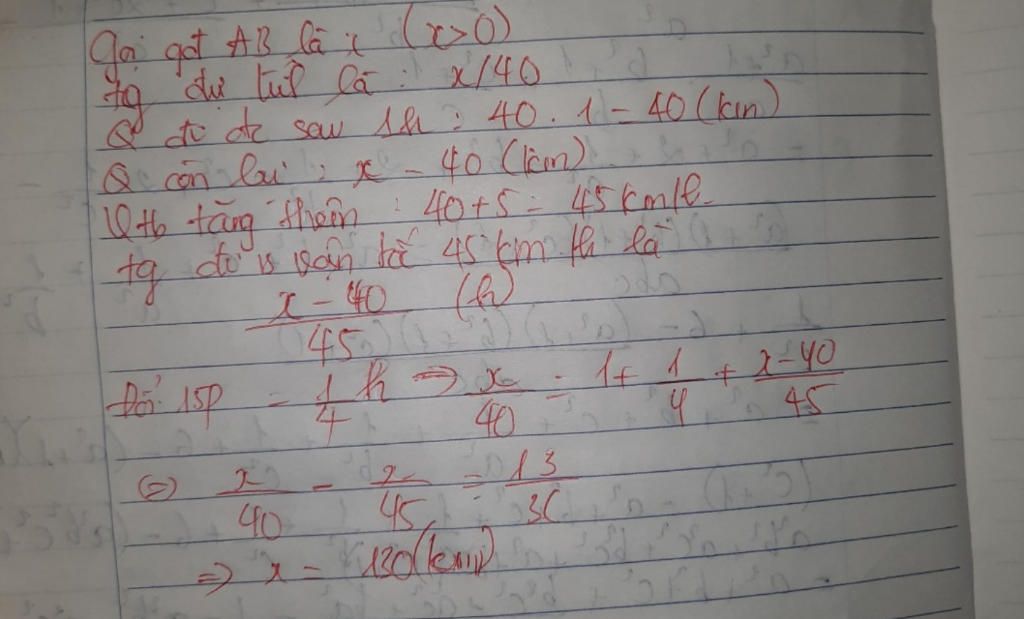 Gọi qđt AB là x (x>0)
tg dự tiết là : x/40
Q đi đc sau 1h : 40 . 1 = 40 (km)
Q còn lại : x - 40 (km)
tăng thêm : 40+5 = 45 km/h
tg đi vs vận tốc 45 km/h là
x - 40 / 45 (h)
Đổi 15p = 1/4 h => x/40 = 1 + 1/4 + x-40/45
<=> x/40 - x/45 = 13/36
=> x = 130 (km)